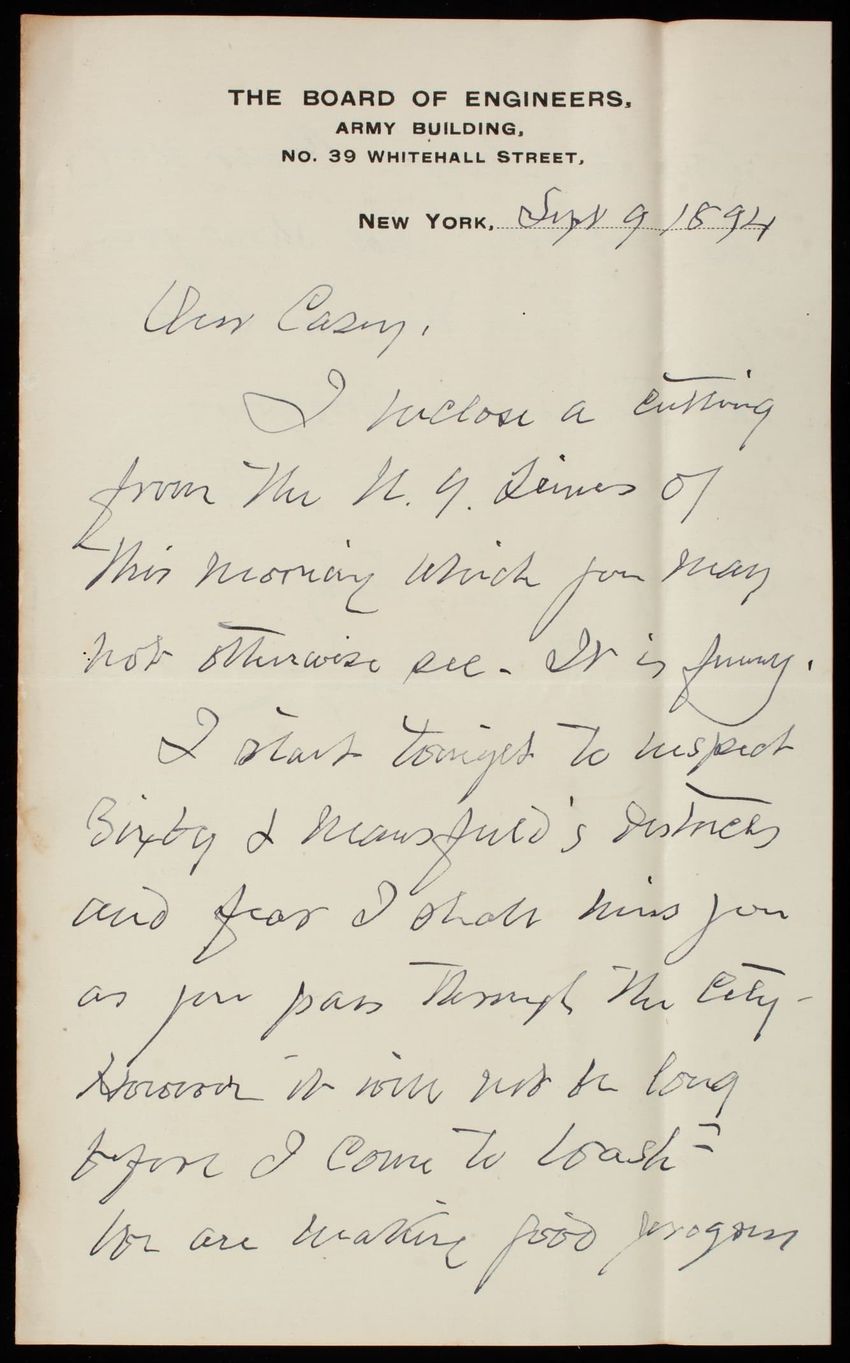 THE BOARD OF ENGINEERS,
ARMY BUILDING,
NO. 39 WHITEHALL STREET,
NEW YORK, Sept 9 1894
Dear Casey,
I inclose a cutting
from the N.Y. Times of
this morning which you may
not otherwise see - It is funny.
I start tonight to inspect
Bixby & Mansfield's districts
and fear I shall miss you
as you pass through the City -
However it will not be long
before I come to Wash=
We are making good progress